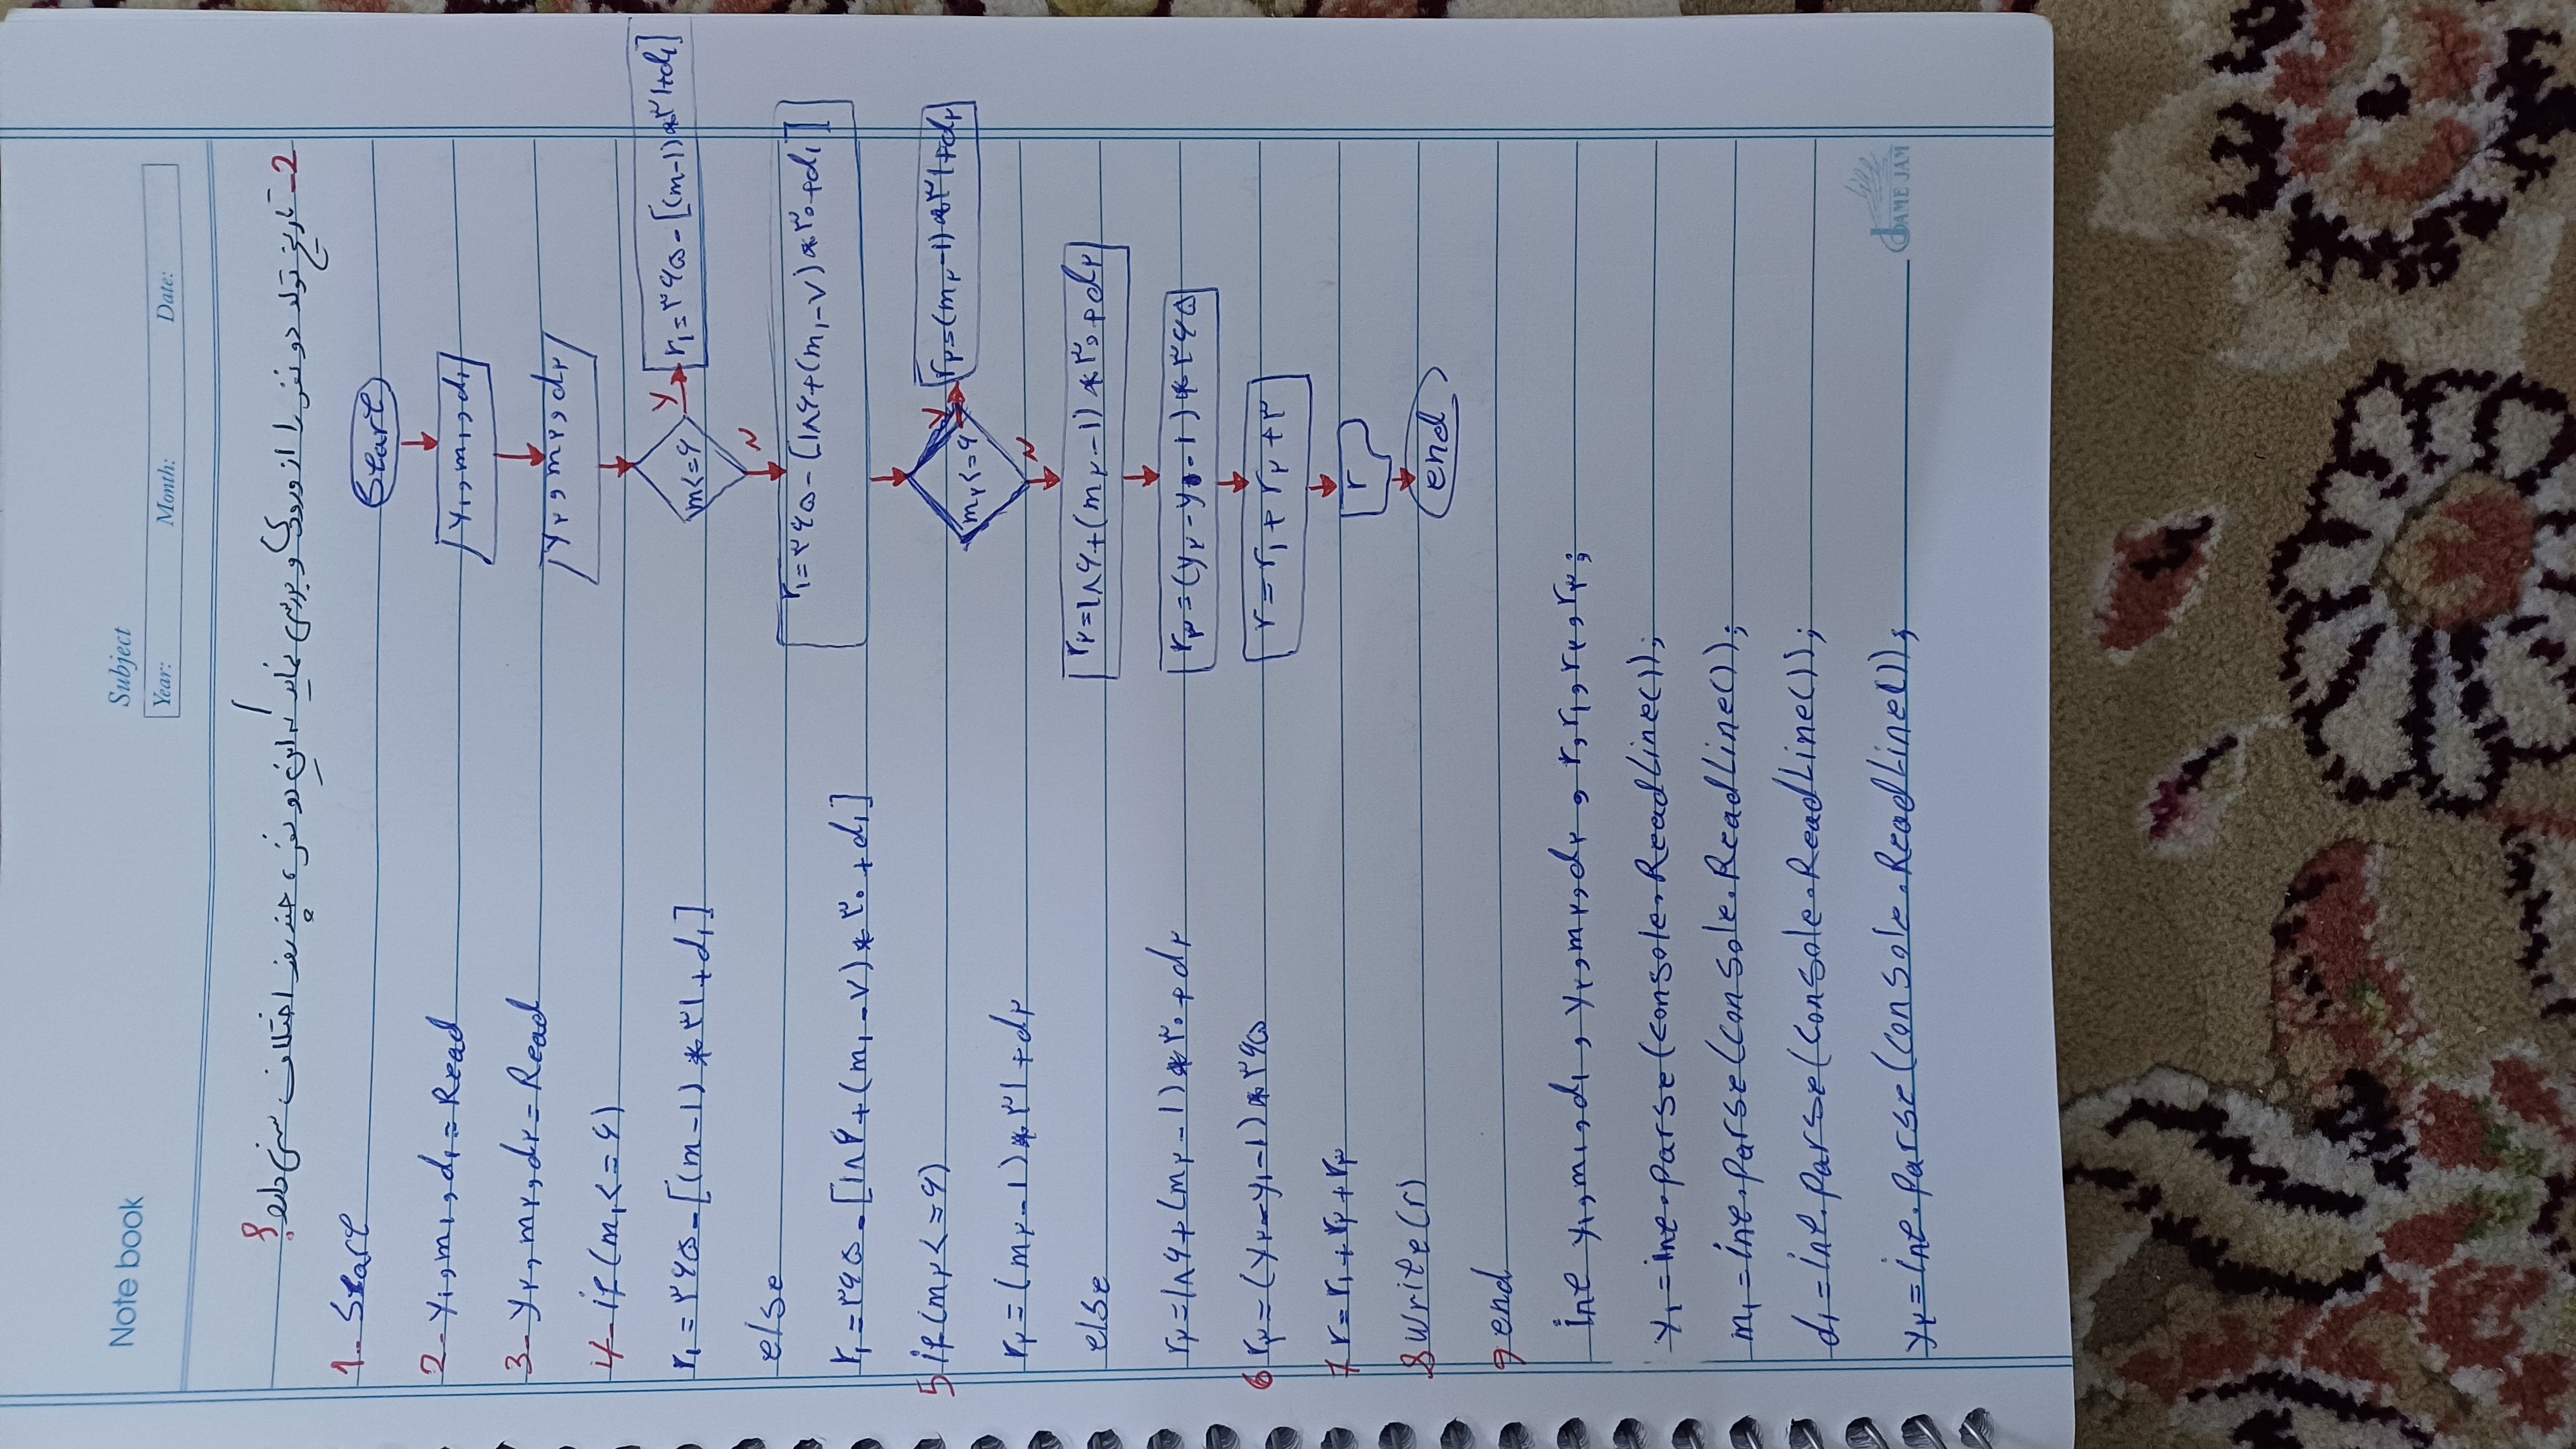 Note book
Subject
Year: Month: Date:
2- تاریخ تولد دو نفر را از ورودی و بررسی نماید که این دو نفر، چند روز اختلاف سنی دارد؟
1- Start
2- y۱,m۱,d۱=Read
3- y۲,m۲,d۲=Read
4- if(m۱<=۶)
r۱=۳۶۵-[(m-۱)*۳۱+d۱]
else
r۱=۳۶۵-[۱۸۶+(m۱-۷)*۳۰+d۱]
5 if(m۲<=۶)
r۲=(m۲-۱)*۳۱+d۲
else
r۲=۱۸۶+(m۲-۱)*۳۰+d۲
6 r۳=(y۲-y۱-۱)*۳۶۵
7 r=r۱+r۲+r۳
8 write(r)
9 end
Start
y۱,m۱,d۱
y۲,m۲,d۲
m<=۶
Y
r۱=۳۶۵-[(m-۱)*۳۱+d۱]
N
r۱=۳۶۵-[۱۸۶+(m۱-۷)*۳۰+d۱]
m۲<=۶
Y
r۲=(m۲-۱)*۳۱+d۲
N
r۲=۱۸۶+(m۲-۱)*۳۰+d۲
r۳=(y۲-y۱-۱)*۳۶۵
r=r۱+r۲+۳
r
end
int y۱,m۱,d۱,y۲,m۲,d۲,r,r۱,r۲,r۳;
y۱=int.parse(console.ReadLine());
m۱=int.parse(console.ReadLine());
d۱=int.parse(console.ReadLine());
y۲=int.parse(console.ReadLine());
JAME JAM